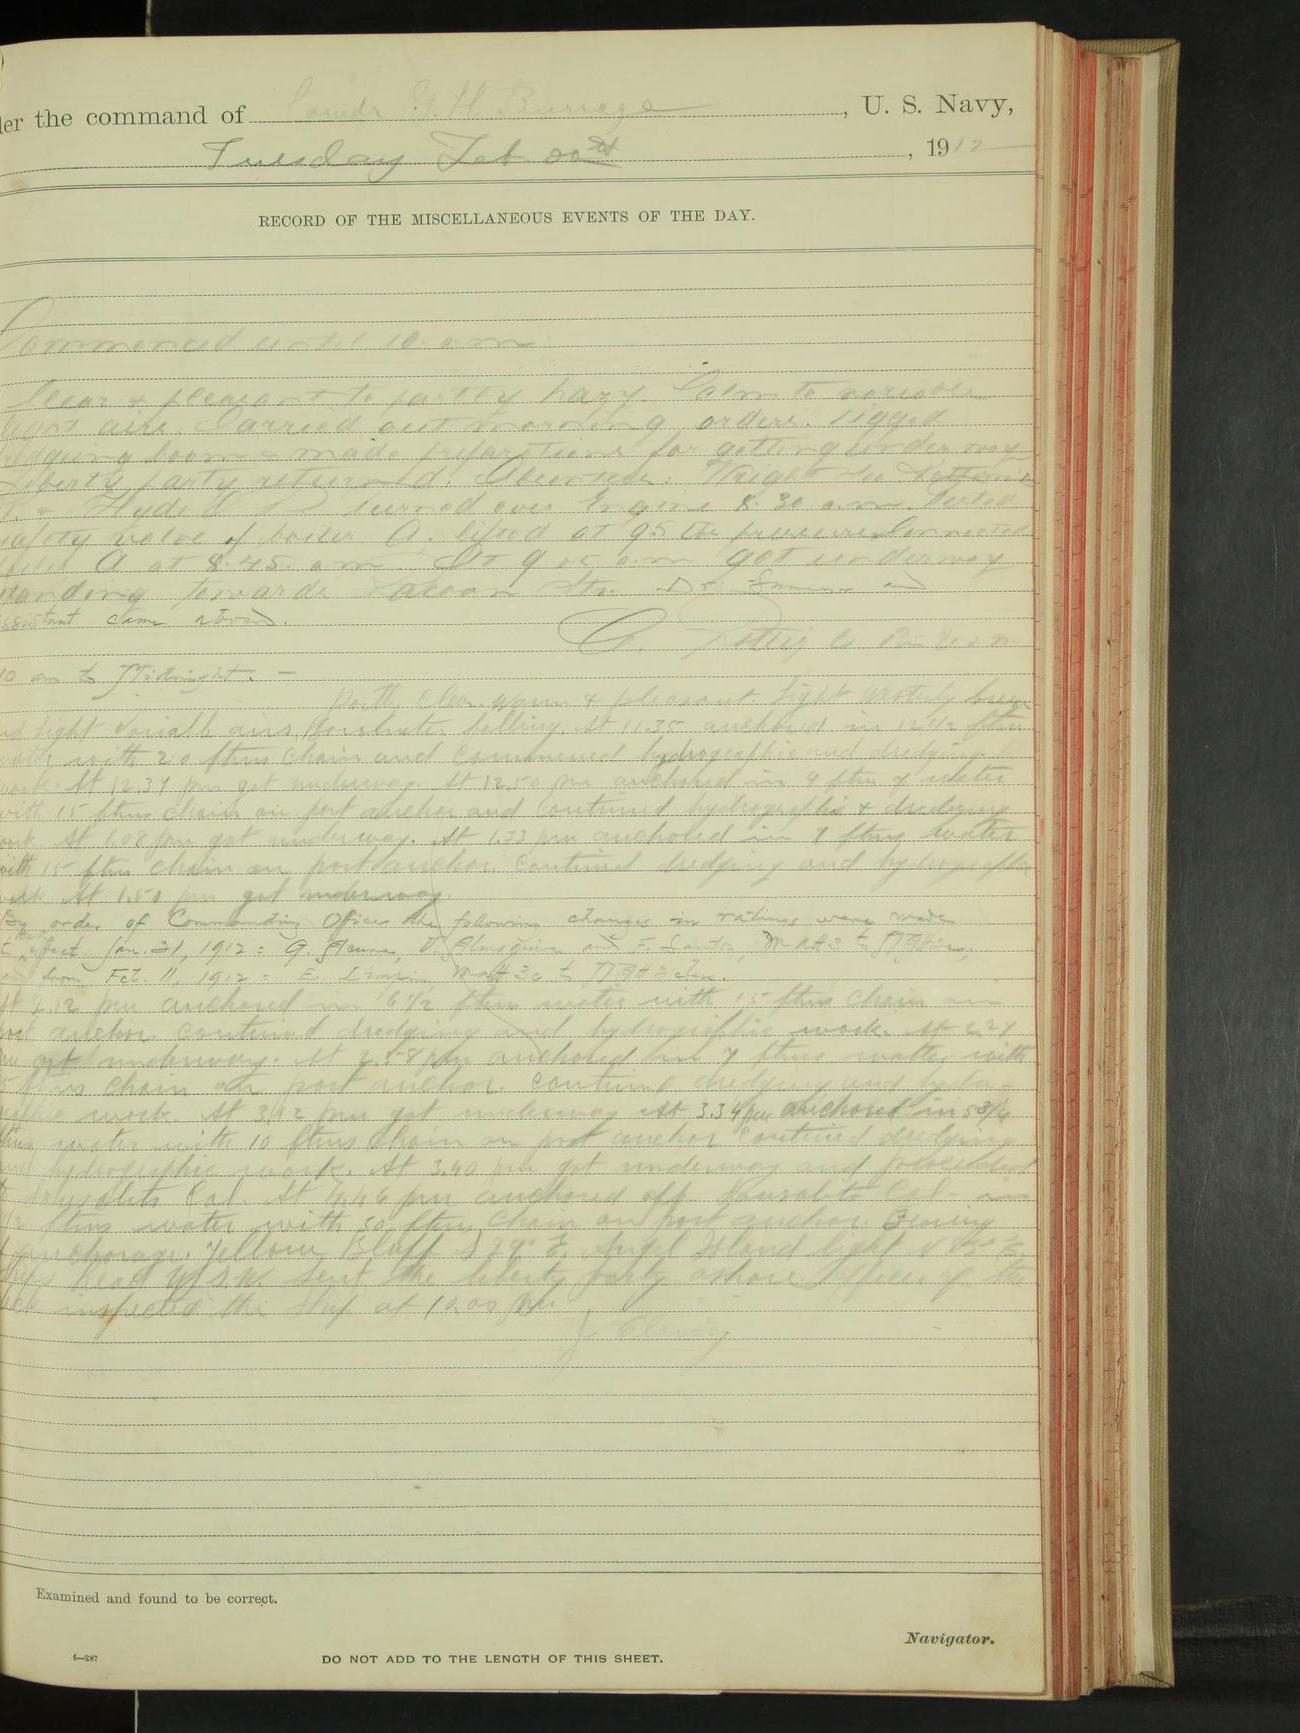 der the command of Comdr G. H. Burrage, U. S. Navy,
Tuesday Feb 20th, 1912
RECORD OF THE MISCELLANEOUS EVENTS OF THE DAY.
Commenced until 10 a.m.
Clear & pleasant to partly hazy. Calm to variable
light airs. Carried out morning orders. rigged
dredging boom & made preparations for getting under way
liberty party returned. Absentees: Wright
& Hyde turned over Engine 8.30 a.m. tested
safety valve of boiler A. lifted at 95 lbs pressure. Connected
boiler A at 8.45 a.m. At 9 05 a.m. got underway
standing towards Raccoon Str. Dr. Sumner and
assistant came aboard.
10 am to Midnight. —
Partly clear. Warm & pleasant. Light westerly breeze
and light variable airs, Barometer falling. At 11.35 anchored in 12 1/2 ftms
water with 20 ftms chain and commenced hydrographic and dredging
work. At 12.34 pm got underway. At 12.50 pm anchored in 9 ftms of water
with 15 ftms chain on port anchor and continued hydrographic & dredging
work. At 1.08 pm got underway. At 1.33 pm anchored in 7 ftms water
with 15 ftms chain on port anchor. Continued dredging and hydrographic
work At 1.50 pm got underway.
By order of Commanding Officer the following changes in ratings were made
to effect Jan. 31, 1912: G. and E. Santos, Matt 3 to
and from Feb. 11, 1912: E. Matt 3c to
At 2.12 pm anchored in 6 1/2 ftms water with 15 ftms chain on
port anchor. Continued dredging and hydrographic work. At 2.27
pm got underway. At 2.58 pm anchored in 7 ftms water with
15 ftms chain on port anchor. Continued dredging and hydro-
graphic work. At 3.12 pm got underway At 3.34 pm anchored in 5 3/4
ftms water with 10 ftms chain on port anchor Continued dredging
and hydrographic work. At 3.40 pm got underway and proceeded
to Sausalito Cal. At 4.46 pm anchored off Sausalito Cal. in
1/2 ftms water with 30 ftms chain on port anchor. Bearing
of anchorage. Yellow Bluff S 29° E. Angel Island light
Ships head W.S.W. Sent the liberty party ashore. Officer of the
deck inspected the ship at 10.00 pm.
Examined and found to be correct.
Navigator.
4—287
DO NOT ADD TO THE LENGTH OF THIS SHEET.